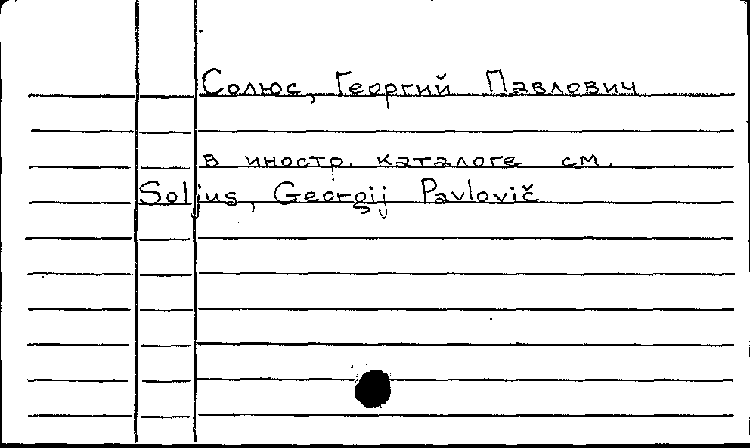 Солюс, Георгий Павлович
в иностр. каталоге см.
Soljus, Georgij Pavlovič